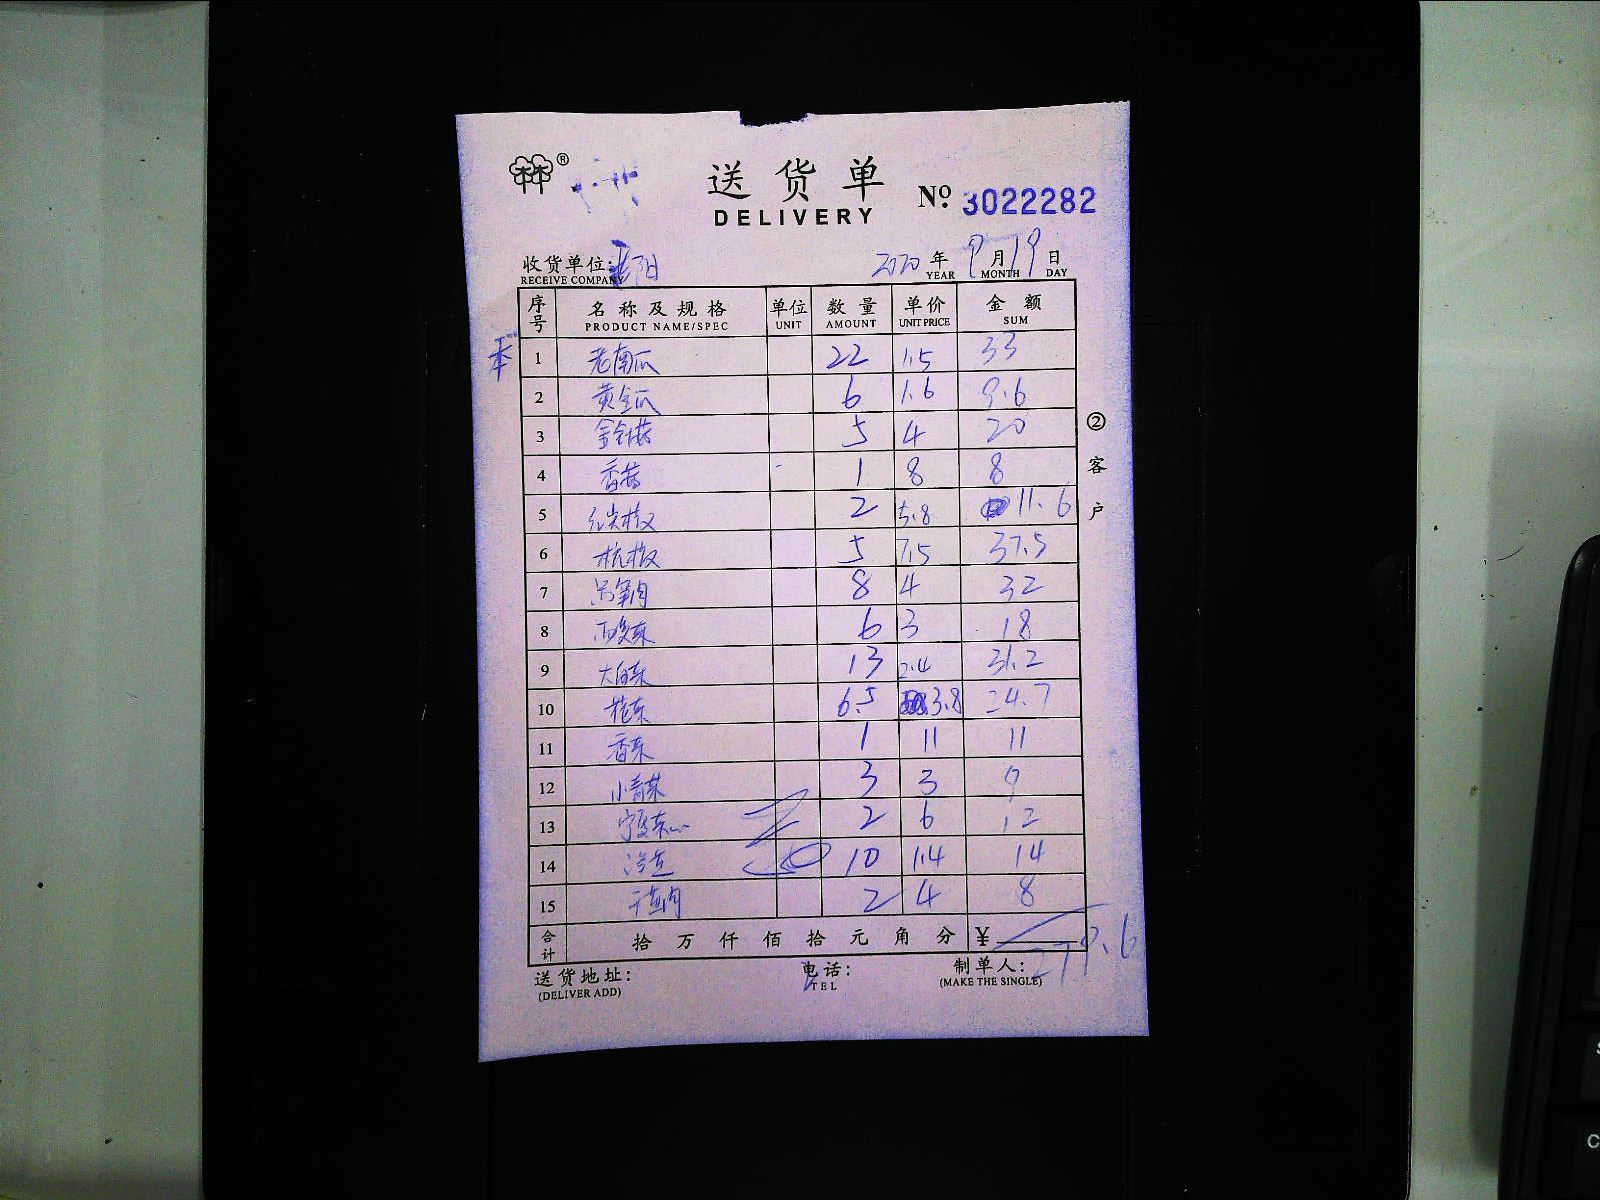 林林®
送货单
DELIVERY
№ 3022282
收货单位: 阳
RECEIVE COMPANY
2020年 9月19日
YEAR MONTH DAY
序号 名称及规格 单位 数量 单价 金额
PRODUCT NAME/SPEC UNIT AMOUNT UNIT PRICE SUM
1 老南瓜 22 1.5 33
2 黄金瓜 6 1.6 9.6
3 金针菇 5 4 20
4 香菇 1 8 8
5 红尖椒 2 5.8 11.6
6 杭椒 5 7.5 37.5
7 8 4 32
8 酸菜 6 3 18
9 大白菜 13 2.4 31.2
10 花菜 6.5 3.8 24.7
11 香菜 1 11 11
12 小青菜 3 3 9
13 宁夏菜心 2 6 12
14 10 1.4 14
15 2 4 8
合计 拾万仟佰拾元角分 ¥ 279.6
送货地址: 电话: 制单人:
(DELIVER ADD) TEL (MAKE THE SINGLE)
②客户